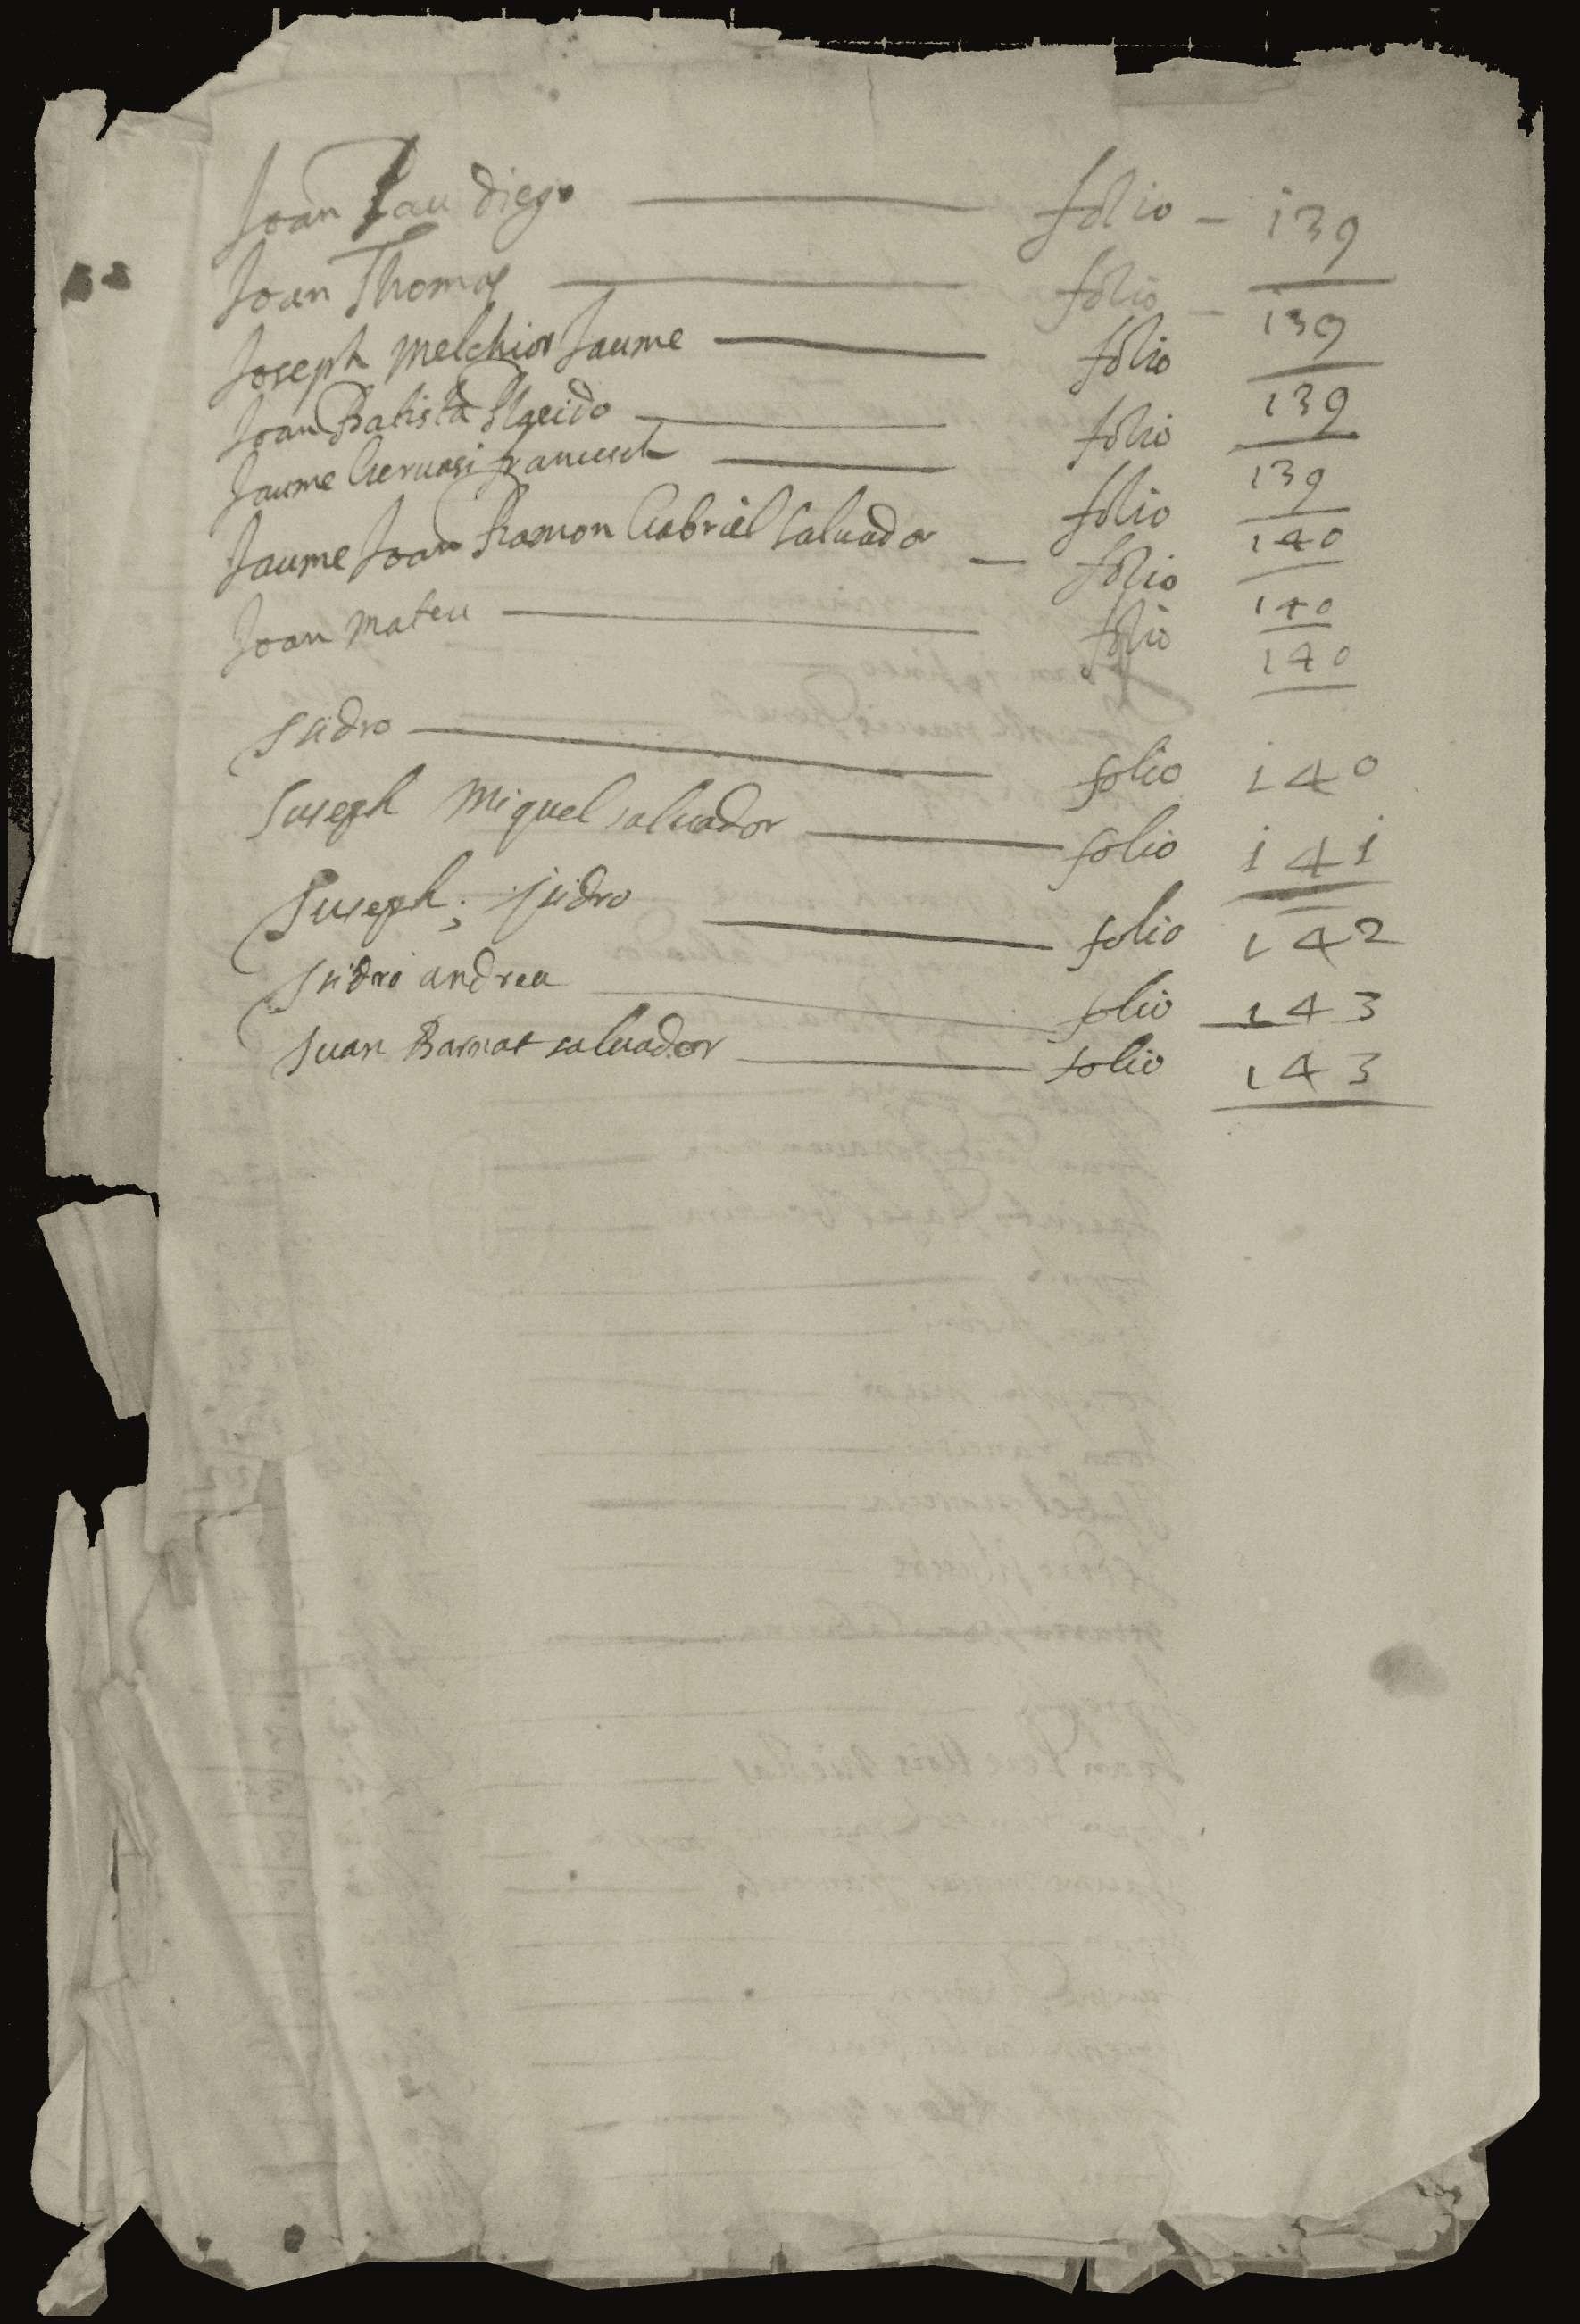 Joan Pau diego — folio - 139
Joan Thomas — folio - 139
Joseph Melchior Jaume — folio 139
Joan Batista Placido — folio 139
Jaume Gervasi francesch — folio 140
Jaume Joan Ramon Gabriel salvador — folio 140
Joan Mateu — folio 140
Isidro — folio 140
Juseph Miquel salvador — folio 141
Juseph; isidro — folio 142
Isidro andreu — folio 143
Juan Barnat salvador — folio 143